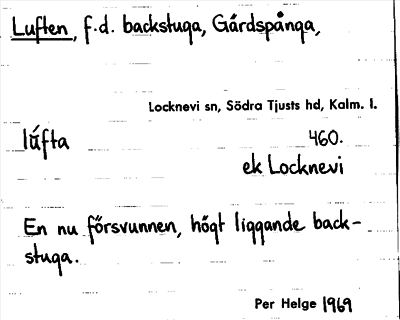 Luften, f.d. backstuga, Gårdspånga,
Locknevi sn, Södra Tjusts hd, Kalm. l.
lúfta 460.
ek Locknevi
En nu försvunnen, högt liggande back-
stuga.
Per Helge 1969